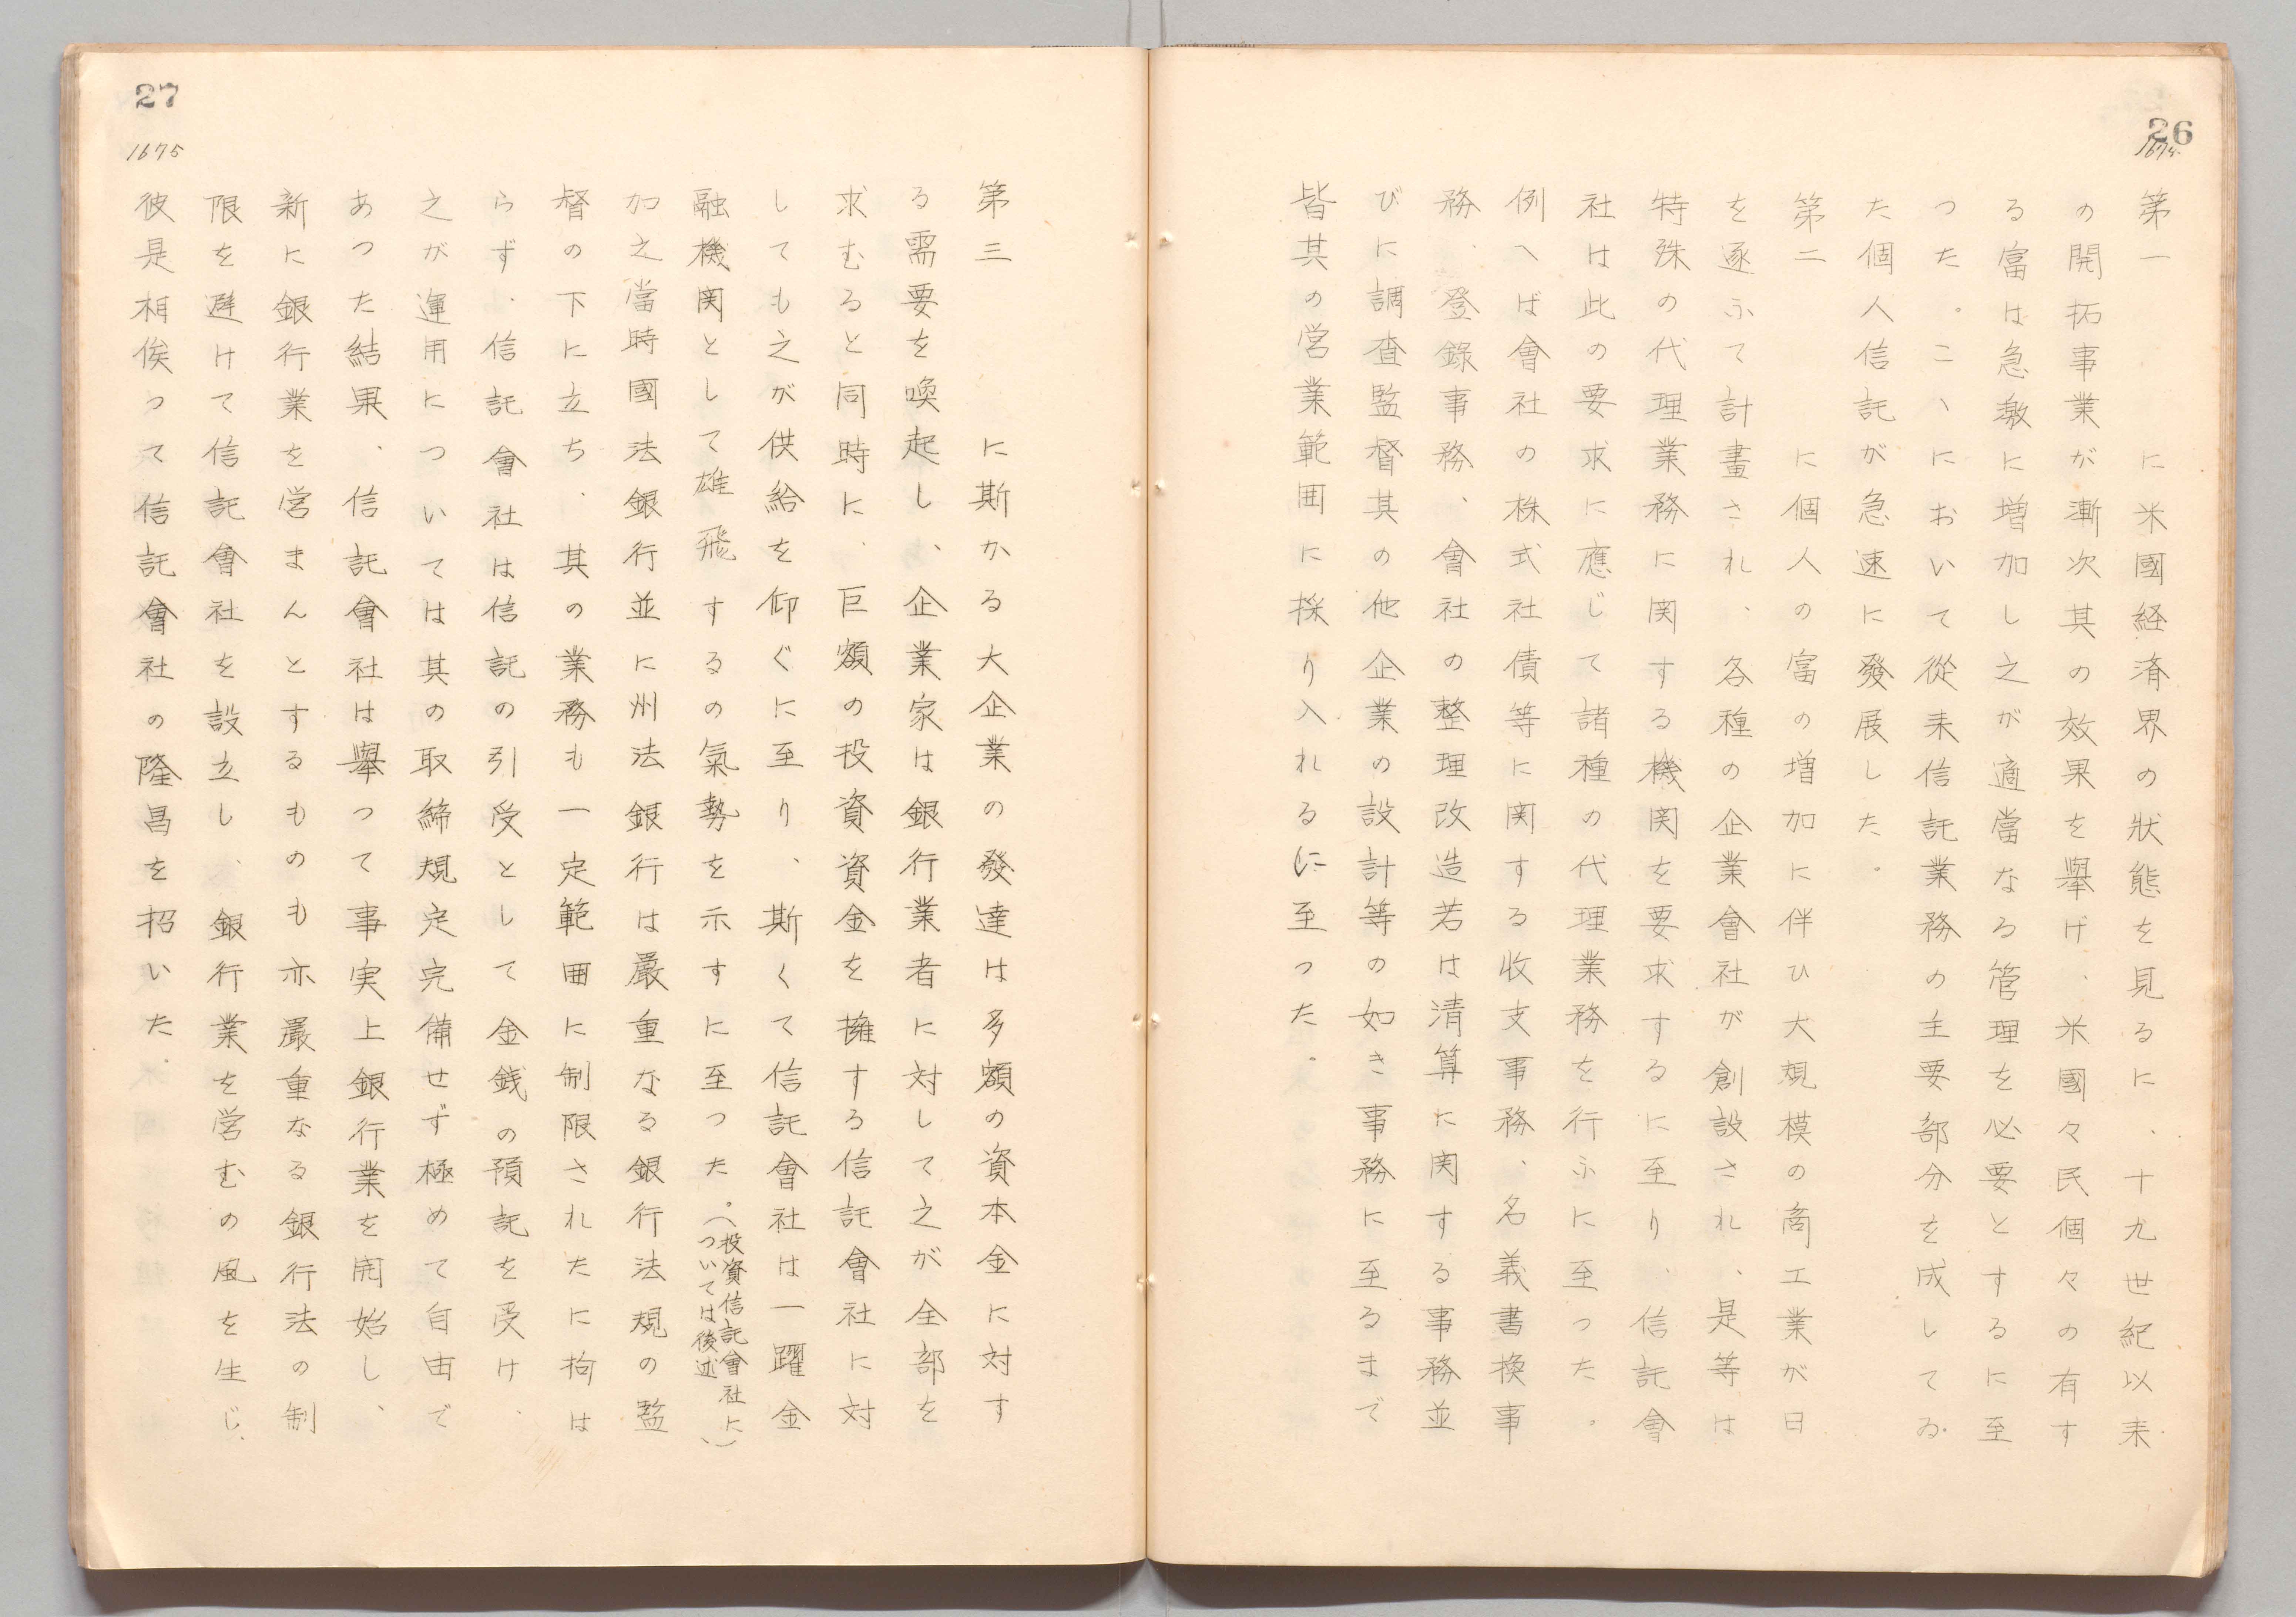 26
第一　に米國経済界の狀態を見るに、十九世紀以来
の開拓事業が漸次其の效果を擧げ、米國々民個々の有す
る富は急激に増加し之が適當なる管理を必要とするに至
つた。こゝにおいて從来信託業務の主要部分を成してゐ
た個人信託が急速に發展した。
第二　に個人の富の増加に伴ひ大規模の商工業が日
を逐ふて計畫され、各種の企業會社が創設され、是等は
特殊の代理業務に関する機関を要求するに至り、信託會
社は此の要求に應じて諸種の代理業務を行ふに至つた。
例へば會社の株式社債等に関する收支事務、名義書換事
務、登錄事務、會社の整理改造若は清算に関する事務並
びに調査監督其の他企業の設計等の如き事務に至るまで
皆其の営業範囲に採り入れるに至つた。
27
1675
第三　に斯かる大企業の發達は多額の資本金に対す
る需要を喚起し、企業家は銀行業者に対して之が全部を
求むると同時に、巨額の投資資金を擁する信託會社に対
しても之が供給を仰ぐに至り、斯くて信託會社は一躍金
融機関として雄飛するの氣勢を示すに至つた。（投資信託會社に
ついては後述、）
加之當時國法銀行並に州法銀行は嚴重なる銀行法規の監
督の下に立ち、其の業務も一定範囲に制限されたに拘は
らず、信託會社は信託の引受として金銭の預託を受け、
之が運用については其の取締規定完備せず極めて自由で
あつた結果、信託會社は擧つて事実上銀行業を開始し、
新に銀行業を営まんとするものも亦嚴重なる銀行法の制
限を避けて信託會社を設立し、銀行業を営むの風を生じ、
彼是相俟つて信託會社の隆昌を招いた。